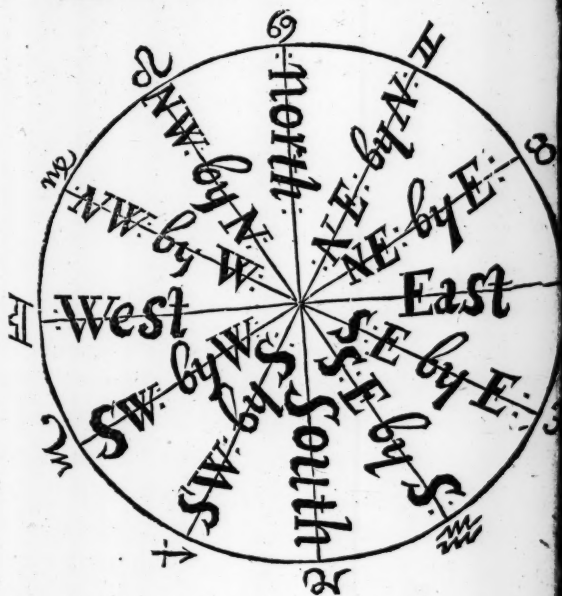 ♋
north
♊
NE by N
♉
NE by E
East
SE by E
♒
SE by S
♑
South
♐
SW by S
♏
SW by W
♎
West
♍
NW by W
♌
NW by N